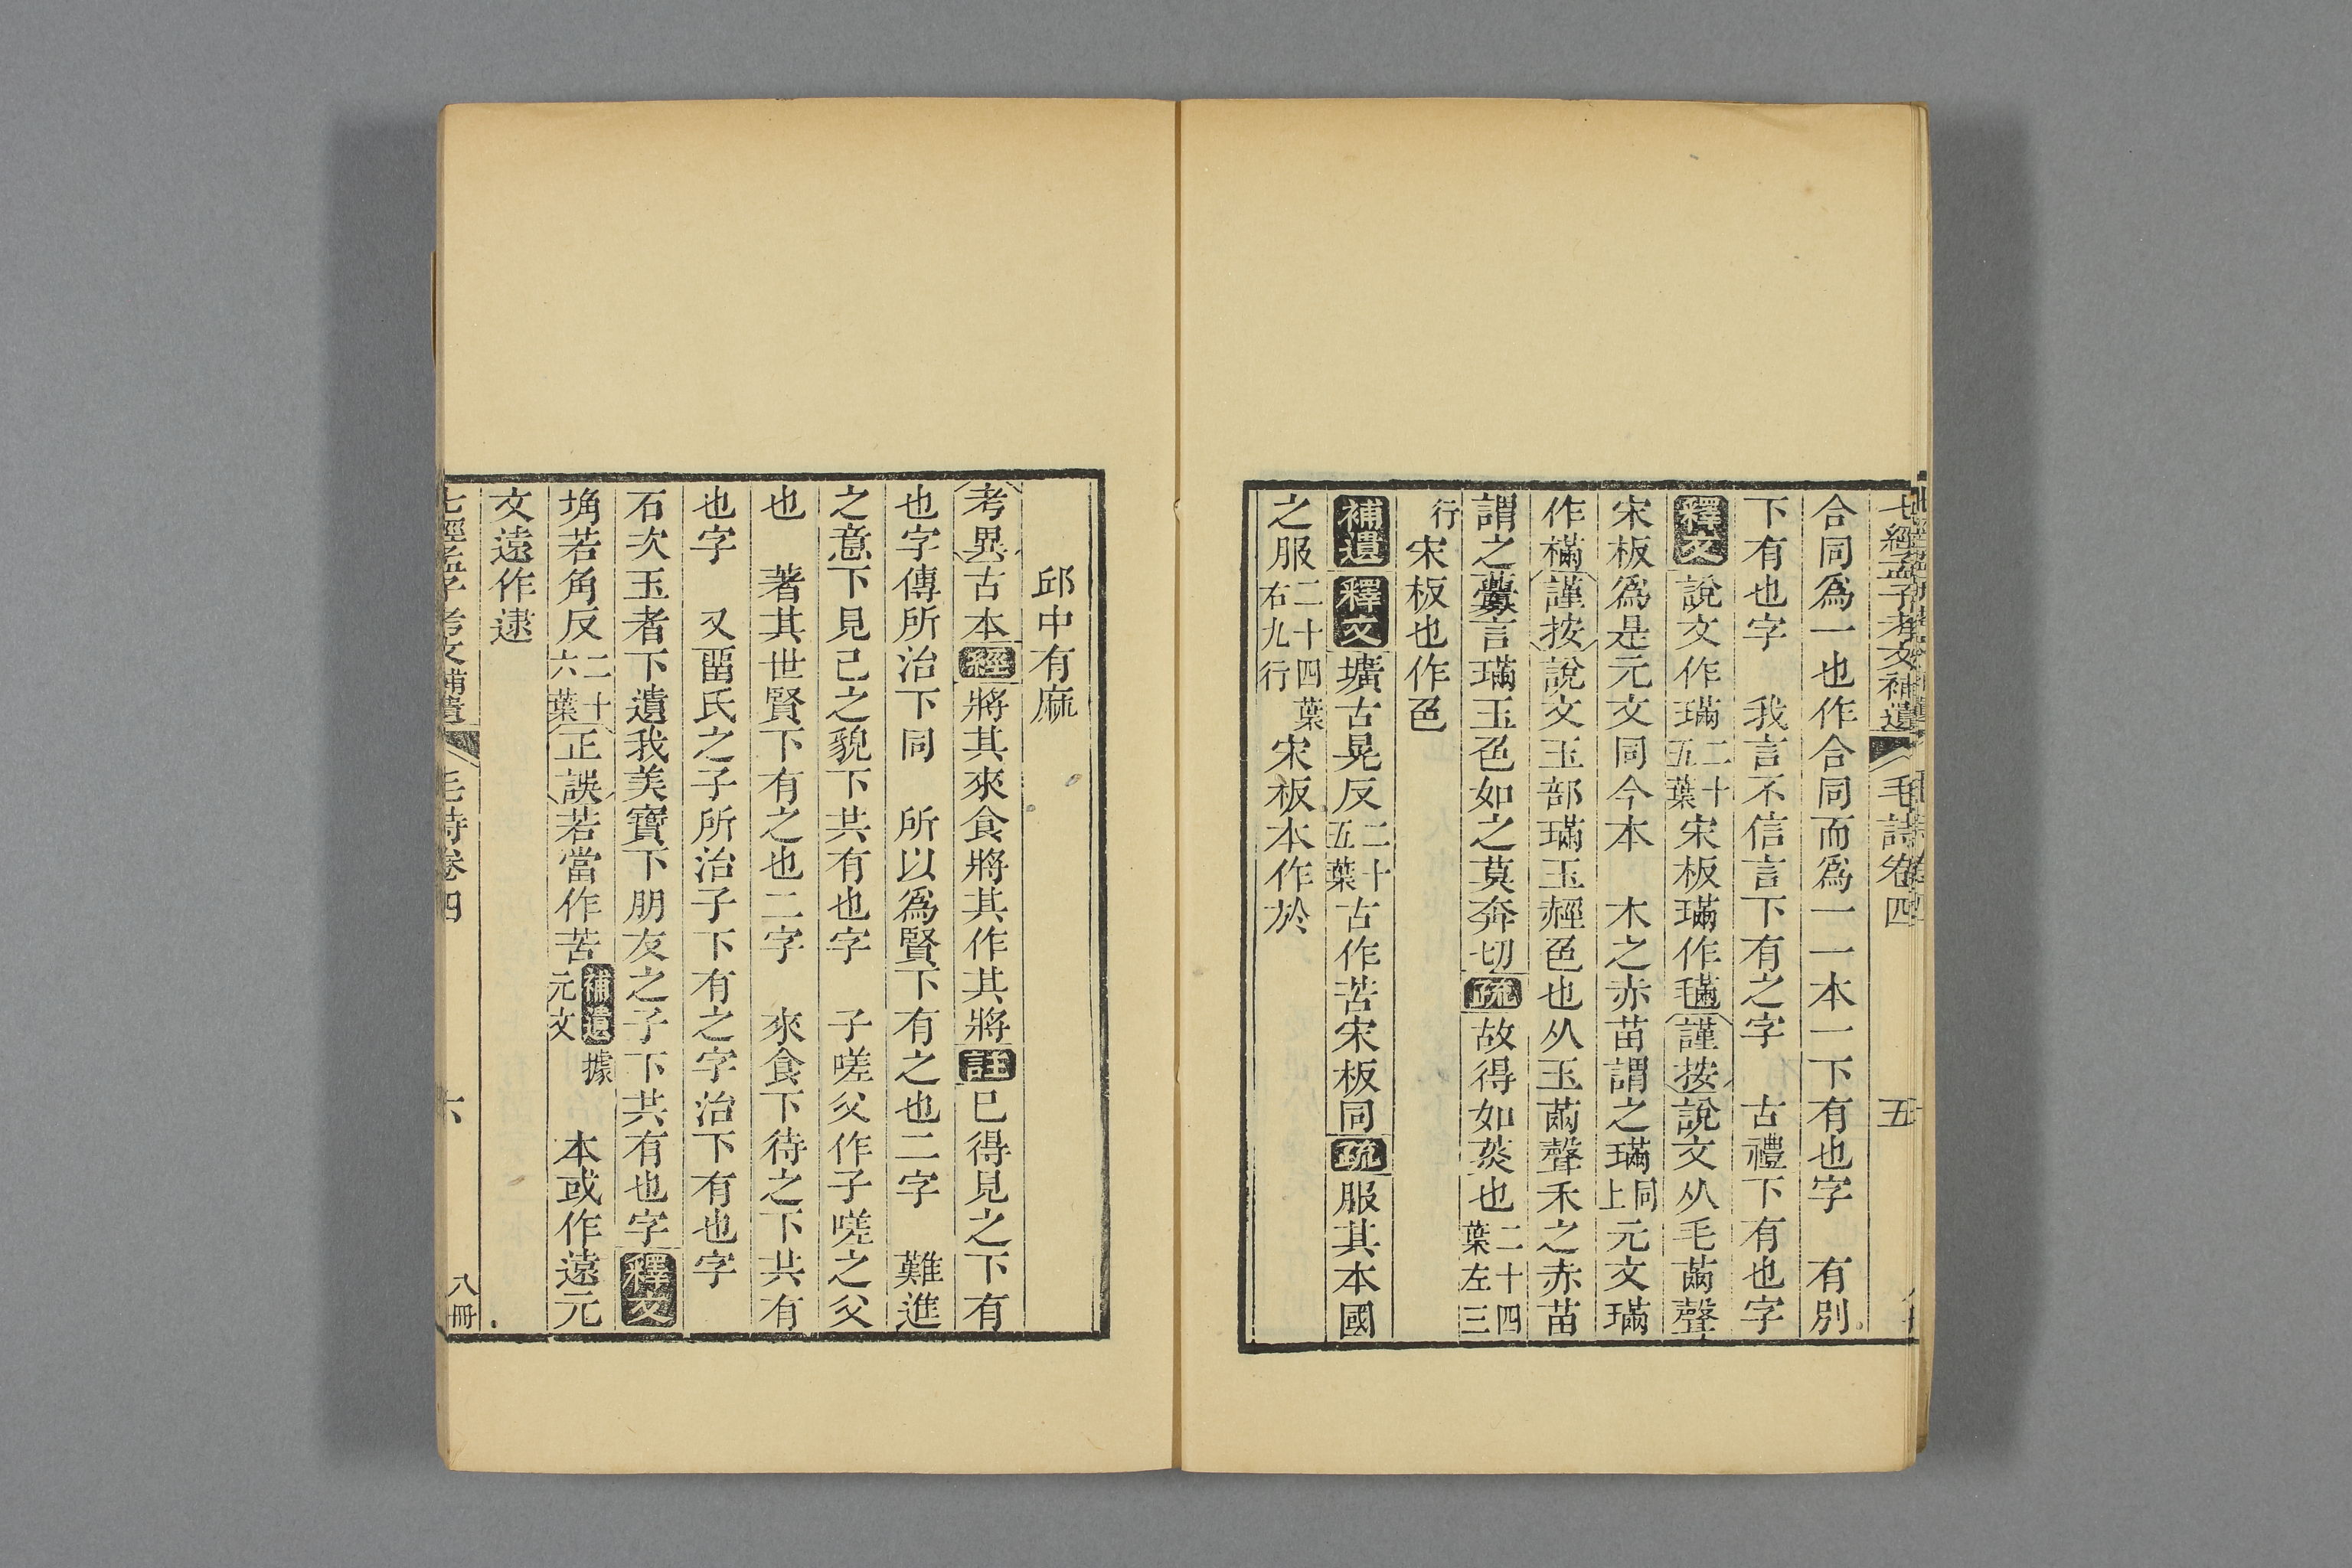 七經孟子考文補遺 毛詩卷四 五
合同爲一也作合同而爲一一本一下有也字 有別
下有也字 我言不信言下有之字 古禮下有也字
釋文說文作璊二十五葉宋板璊作𣯩謹按說文从毛㒼聲
宋板爲是元文同今本 木之赤苗謂之璊同上元文璊
作樠謹按說文玉部璊玉經色也从玉㒼聲禾之赤苗
謂之虋言璊玉色如之莫奔切疏故得如菼也二十四葉左三
行宋板也作色
補遺釋文壙古晃反二十五葉古作苦宋板同疏服其本國
之服二十四葉右九行宋板本作於
邱中有麻
考異古本經將其來食將其作其將註已得見之下有
也字傳所治下同 所以爲賢下有之也二字 難進
之意下見己之貌下共有也字 子嗟父作子嗟之父
也 著其世賢下有之也二字 來食下待之下共有
也字 又畱氏之子所治子下有之字治下有也字
石次玉者下遺我美寶下朋友之子下共有也字釋文
埆若角反二十六葉正誤若當作苦補遺據元文 本或作遠元
文遠作逮
七經孟子考文補遺 毛詩卷四 六 八冊